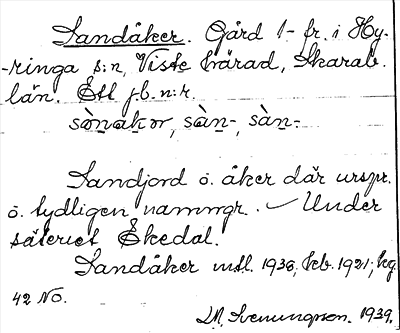 Sandåker. Gård 1- fr. i Hy-
-ringa s:n, Viste härad, Skarab.
län. Ett j.b. n:r.
sònakər, sàn-, sàn-
Sandjord o. åker där urspr.
o. tydligen namngr. Under
säteriet Ekedal.
Sandåker mtl. 1938, Keb. 1921,
42 No.
Svenungson. 1939.